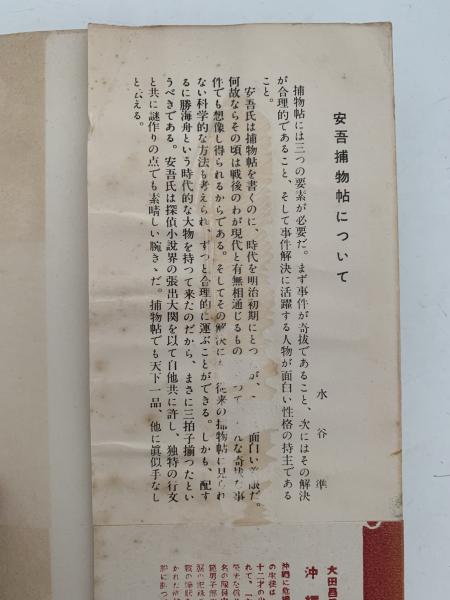 安吾捕物帖について
水谷 準
捕物帖には三つの要素が必要だ。まず事件が奇抜であること、次にはその解決
が合理的であること、そして事件解決に活躍する人物が面白い性格の持主である
こと。
安吾氏は捕物帖を書くのに、時代を明治初期にとつ が、 面白い 。
何故ならその頃は戦後のわが現代と有無相通じるもの つて な奇抜な事
件でも想像し得られるからである。そしてその解決に 従来の捕物帖に見られ
ない科学的な方法も考えられ、ずつと合理的に運ぶことができる。しかも、配す
るに勝海舟という時代的な大物を持つて来たのだから、まさに三拍子揃つたとい
うべきである。安吾氏は探偵小説界の張出大関を以て自他共に許し、独特の行文
と共に謎作りの点でも素晴しい腕きゝだ。捕物帖でも天下一品、他に真似手なし
と云える。
大田昌
沖縄
沖縄に危機
の生徒は
十二才の少
れて、